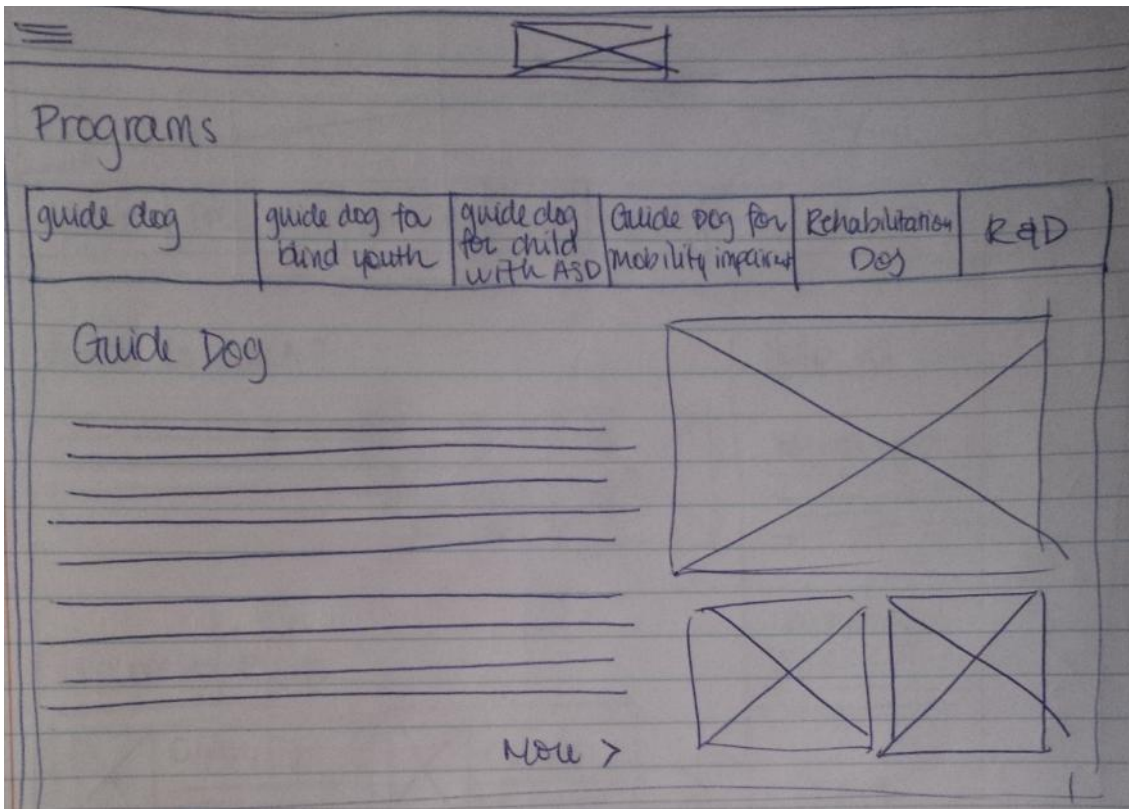 Programs
guide dog
guide dog for
blind youth
guide dog
for child
with ASD
Guide Dog for
mobility impairment
Rehabilitation
Dog
R&D
Guide Dog
More >